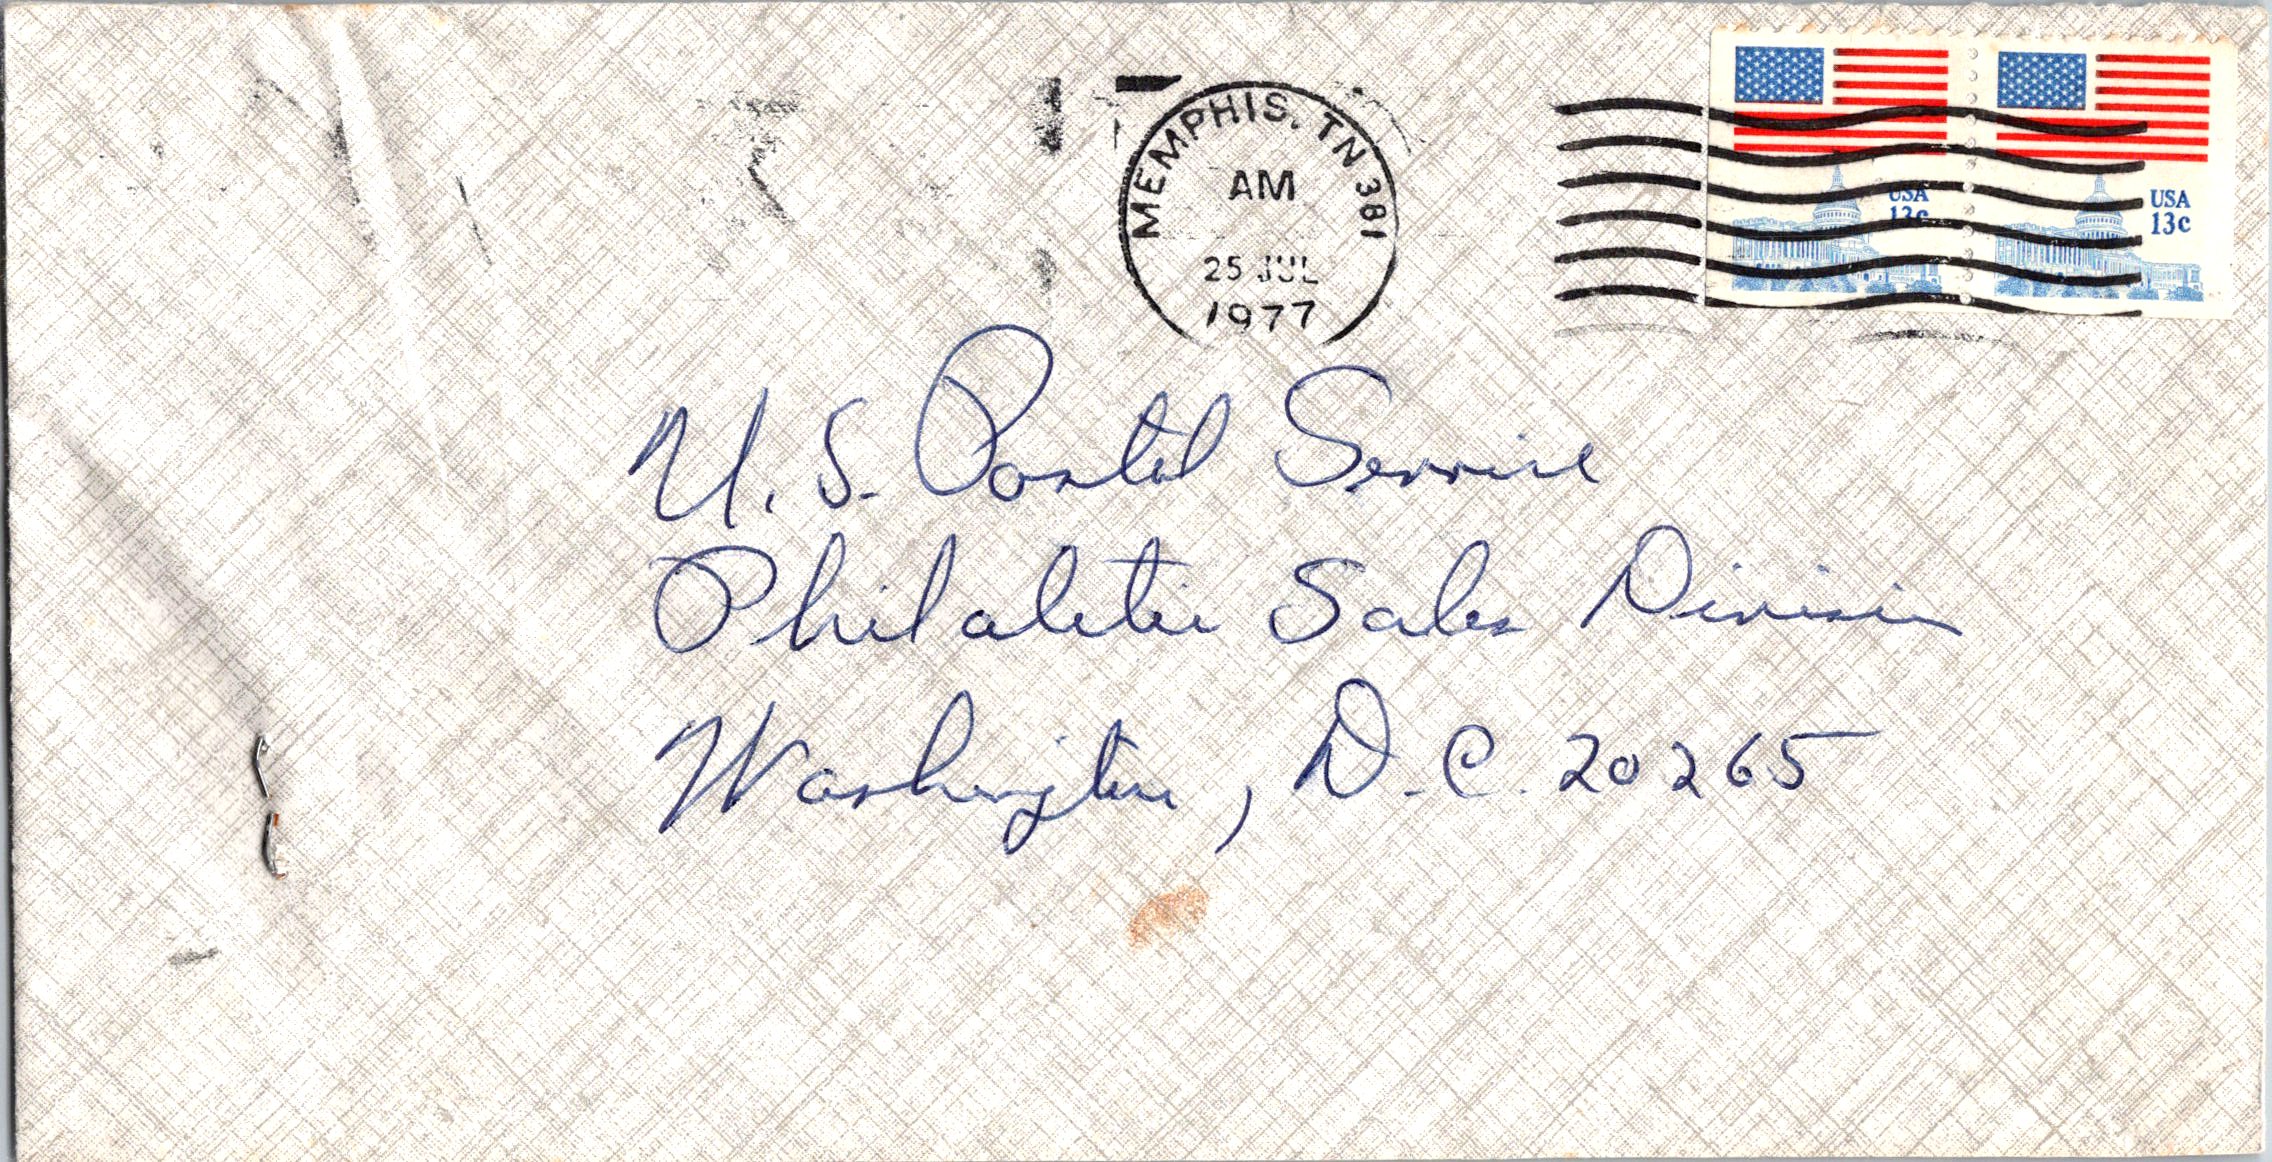 MEMPHIS, TN 381
AM
25 JUL
1977
USA
13c
USA
13c
U.S. Postal Service
Philatelic Sales Division
Washington, D.C. 20265